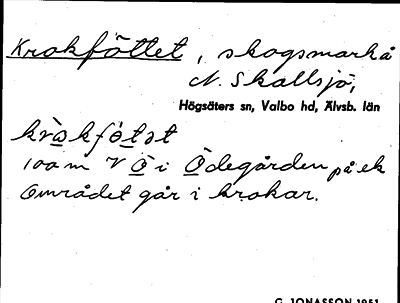 Krokföttet, skogsmark å
N. Skallsjö,
Högsäters sn, Valbo hd, Älvsb. län
krò̱skfö̱tət
100 m V Ö i Ödegården på ek
Området går i krokar.
G. JONASSON 1951